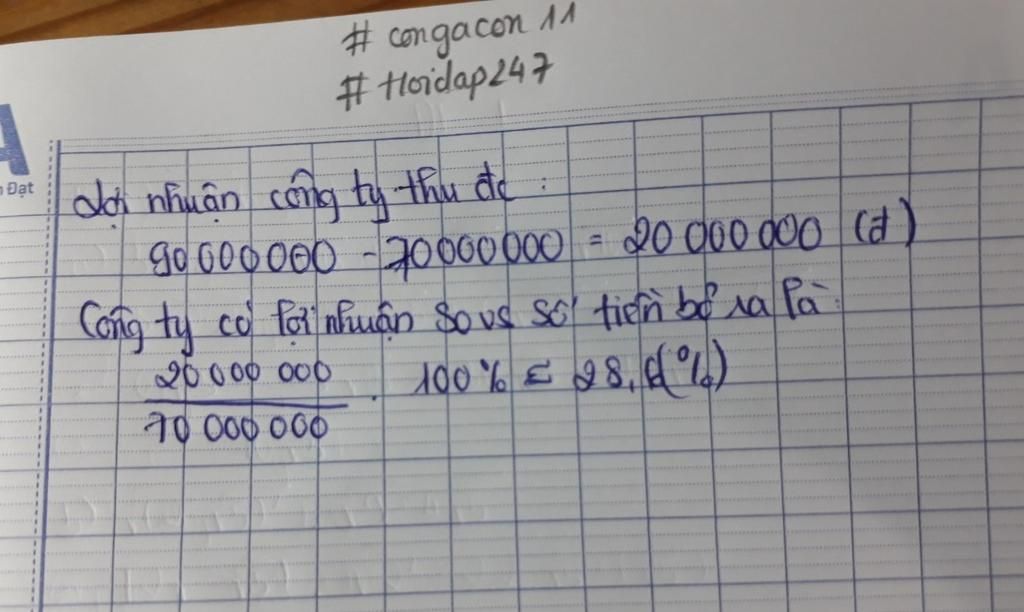 # congacon 11
# Hoidap247
A
Đạt
Lợi nhuận công ty thu đc :
90 000 000 - 70 000 000 = 20 000 000 (đ)
Công ty có lợi nhuận so vs số tiền bỏ ra là:
20 000 000
70 000 000
. 100% =